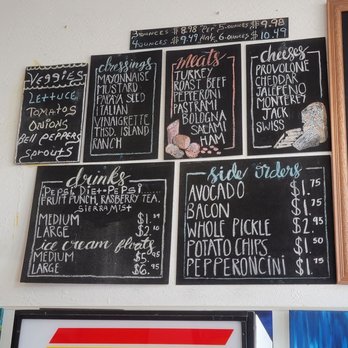 3 OUNCES $8.98
4 OUNCES $9.49
5 OUNCES $9.98
6 OUNCES $10.49
VEGGIES
LETTUCE
TOMATOS
ONIONS
BELL PEPPERS
SPROUTS
dressings
MAYONNAISE
MUSTARD
PAPAYA SEED
ITALIAN
VINAIGRETTE
THSD. ISLAND
RANCH
meats
TURKEY
ROAST BEEF
PEPPERONI
PASTRAMI
BOLOGNA
SALAMI
HAM
cheeses
PROVOLONE
CHEDDAR
JALEPENO
MONTEREY
JACK
SWISS
drinks
PEPSI, DIET-PEPSI
FRUIT PUNCH, RASBERRY TEA,
SIERRA MIST
MEDIUM $1.
LARGE $2.
ice cream floats
MEDIUM $5.
LARGE $6.
side orders
AVOCADO $1.75
BACON $1.25
WHOLE PICKLE $2.95
POTATO CHIPS $1.50
PEPPERONCINI $1.75